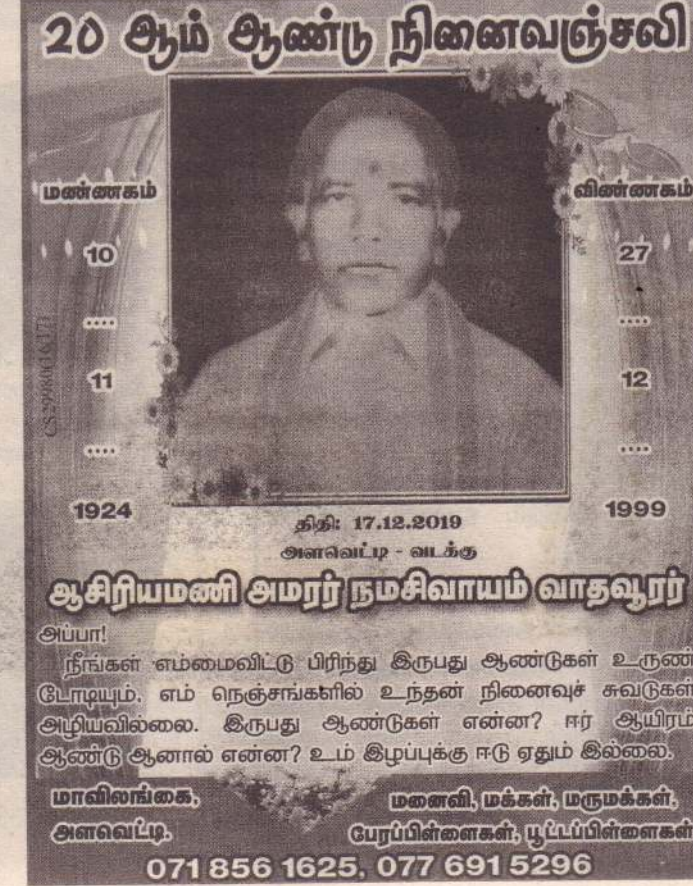 20 ஆம் ஆண்டு நினைவஞ்சலி
மண்ணகம்
10
....
11
....
1924
விண்ணகம்
27
....
12
....
1999
CS29980(16/17)
திதி: 17.12.2019
அளவெட்டி - வடக்கு
ஆசிரியமணி அமரர் நமசிவாயம் வாதவூரர்
அப்பா!
நீங்கள் எம்மைவிட்டு பிரிந்து இருபது ஆண்டுகள் உருண்
டோடியும். எம் நெஞ்சங்களில் உந்தன் நினைவுச் சுவடுகள்
அழியவில்லை. இருபது ஆண்டுகள் என்ன? ஈர் ஆயிரம்
ஆண்டு ஆனால் என்ன? உம் இழப்புக்கு ஈடு ஏதும் இல்லை.
மாவிலங்கை,
அளவெட்டி.
மனைவி, மக்கள், மருமக்கள்,
பேரப்பிள்ளைகள், பூட்டப்பிள்ளைகள்
071 856 1625, 077 691 5296